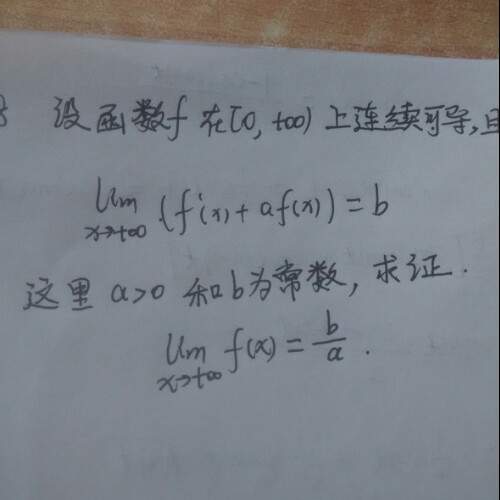 设函数f 在[0, +∞) 上连续可导, 且
lim (f'(x) + a f(x)) = b
x→+∞
这里 a>0 和 b 为常数, 求证.
lim f(x) = b/a .
x→+∞